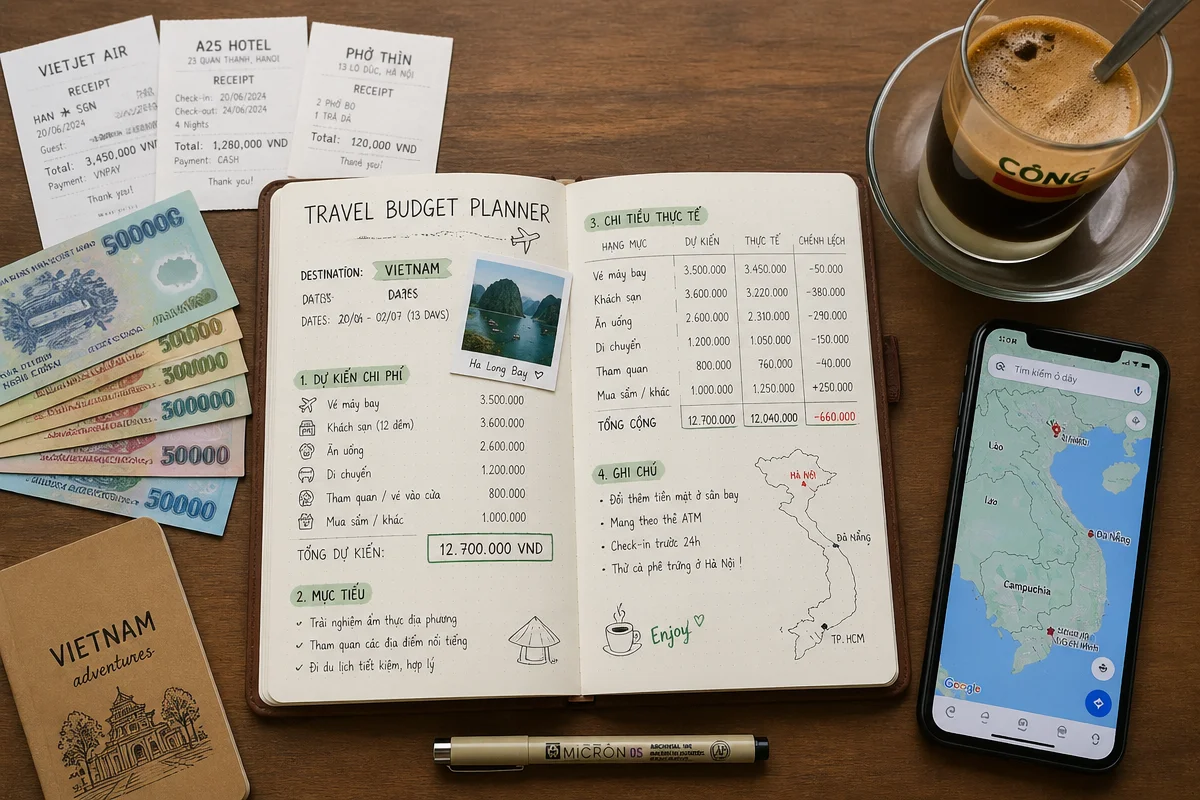 VIETJET AIR
RECEIPT
HAN ✶ SGN
20/06/2024
Guest:
Total: 3,450,000 VND
Payment: VNPAY
Thank you!
A25 HOTEL
23 QUAN THANH, HANOI
RECEIPT
Check-in: 20/06/2024
Check-out: 24/06/2024
4 Nights
Total: 1,280,000 VND
Payment: CASH
Thank you!
PHỞ THÌN
13 LÒ ĐÚC, HÀ NỘI
RECEIPT
2 PHỞ BO
1 TRÀ ĐÁ
Total: 120,000 VND
Thank you!
50000
300000
50000
50000
VIETNAM
adventures
TRAVEL BUDGET PLANNER
DESTINATION: VIETNAM
DATES: 20/04 - 02/07 (13 DAYS)
Ha Long Bay ♡
1. DỰ KIẾN CHI PHÍ
Vé máy bay 3.500.000
Khách sạn (12 đêm) 3.600.000
Ăn uống 2.600.000
Di chuyển 1.200.000
Tham quan / vé vào cửa 800.000
Mua sắm / khác 1.000.000
TỔNG DỰ KIẾN: 12.700.000 VND
2. MỤC TIÊU
Trải nghiệm ẩm thực địa phương
Tham quan các địa điểm nổi tiếng
Đi du lịch tiết kiệm, hợp lý
3. CHI TIÊU THỰC TẾ
HẠNG MỤC DỰ KIẾN THỰC TẾ CHÊNH LỆCH
Vé máy bay 3.500.000 3.450.000 -50.000
Khách sạn 3.600.000 3.220.000 -380.000
Ăn uống 2.600.000 2.310.000 -290.000
Di chuyển 1.200.000 1.050.000 -150.000
Tham quan 800.000 760.000 -40.000
Mua sắm / khác 1.000.000 1.250.000 +250.000
TỔNG CỘNG 12.700.000 12.040.000 -660.000
4. GHI CHÚ
• Đổi thêm tiền mặt ở sân bay
• Mang theo thẻ ATM
• Check-in trước 24h
• Thử cà phê trứng ở Hà Nội !
Enjoy ♡
HÀ NỘI
ĐÀ NẴNG
TP. HCM
MICRON 05
CÔNG
Tìm kiếm ở đây
Lào
Lào
Đà Nẵng
Campuchia
Google